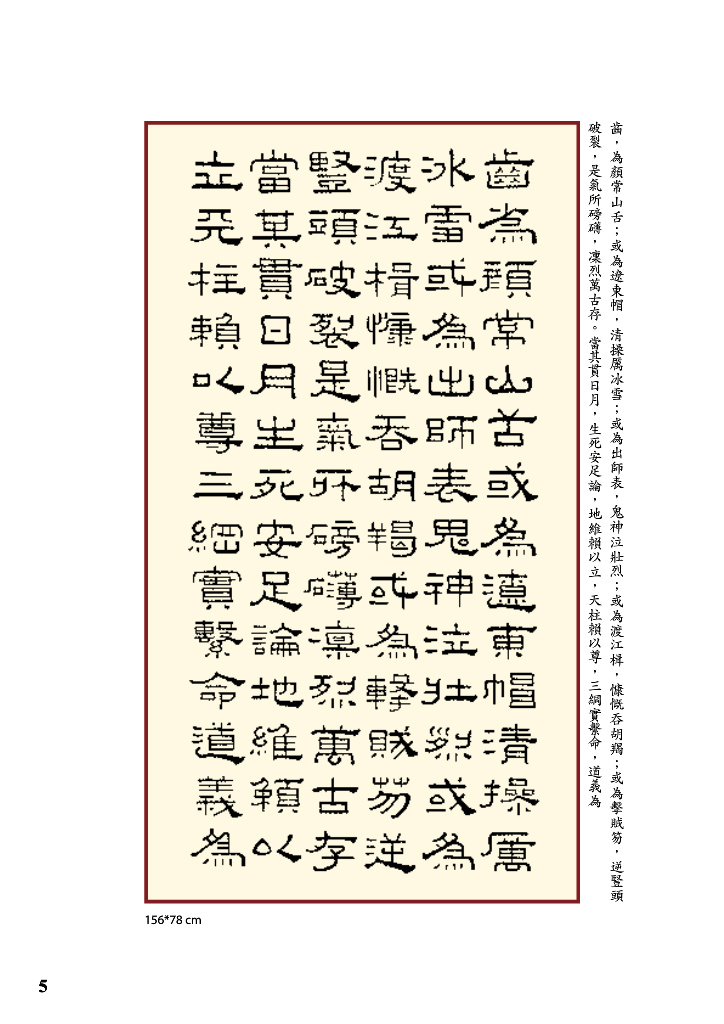 齒，為顏常山舌；或為遼東帽，清操厲冰雪；或為出師表，鬼神泣壯烈；或為渡江楫，慷慨吞胡羯；或為擊賊笏，逆豎頭
破裂，是氣所磅礡，凜烈萬古存。當其貫日月，生死安足論，地維賴以立，天柱賴以尊，三綱實繫命，道義為
齒為顏常山舌或為遼東帽清操厲
冰雪或為出師表鬼神泣壯烈或為
渡江楫慷慨吞胡羯或為擊賊笏逆
豎頭破裂是氣所磅礡凜烈萬古存
當其貫日月生死安足論地維賴以
立天柱賴以尊三綱實繫命道義為
156*78 cm
5